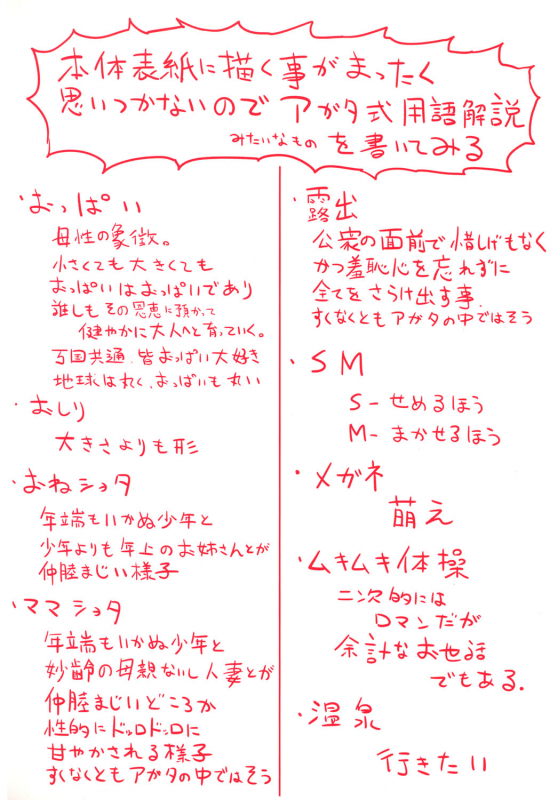 本体表紙に描く事がまったく
思いつかないのでアガタ式用語解説
みたいなものを書いてみる
・おっぱい
母性の象徴。
小さくても大きくても
おっぱいはおっぱいであり
誰しもその恩恵に預かって
健やかに大人へと育っていく。
万国共通、皆おっぱい大好き
地球は丸く、おっぱいも丸い
・おしり
大きさよりも形
・おねショタ
年端もいかぬ少年と
少年よりも年上のお姉さんとが
仲睦まじい様子
・ママショタ
年端もいかぬ少年と
妙齢の母親ないし人妻とが
仲睦まじいどころか
性的にドッロドッロに
甘やかされる様子
すくなくともアガタの中ではそう
・露出
公衆の面前で惜しげもなく
かつ羞恥心を忘れずに
全てをさらけ出す事.
すくなくともアガタの中ではそう
・SM
S-せめるほう
M-まかせるほう
・メガネ
萌え
・ムキムキ体操
二次的には
ロマンだが
余計なお世話
でもある.
・温泉
行きたい